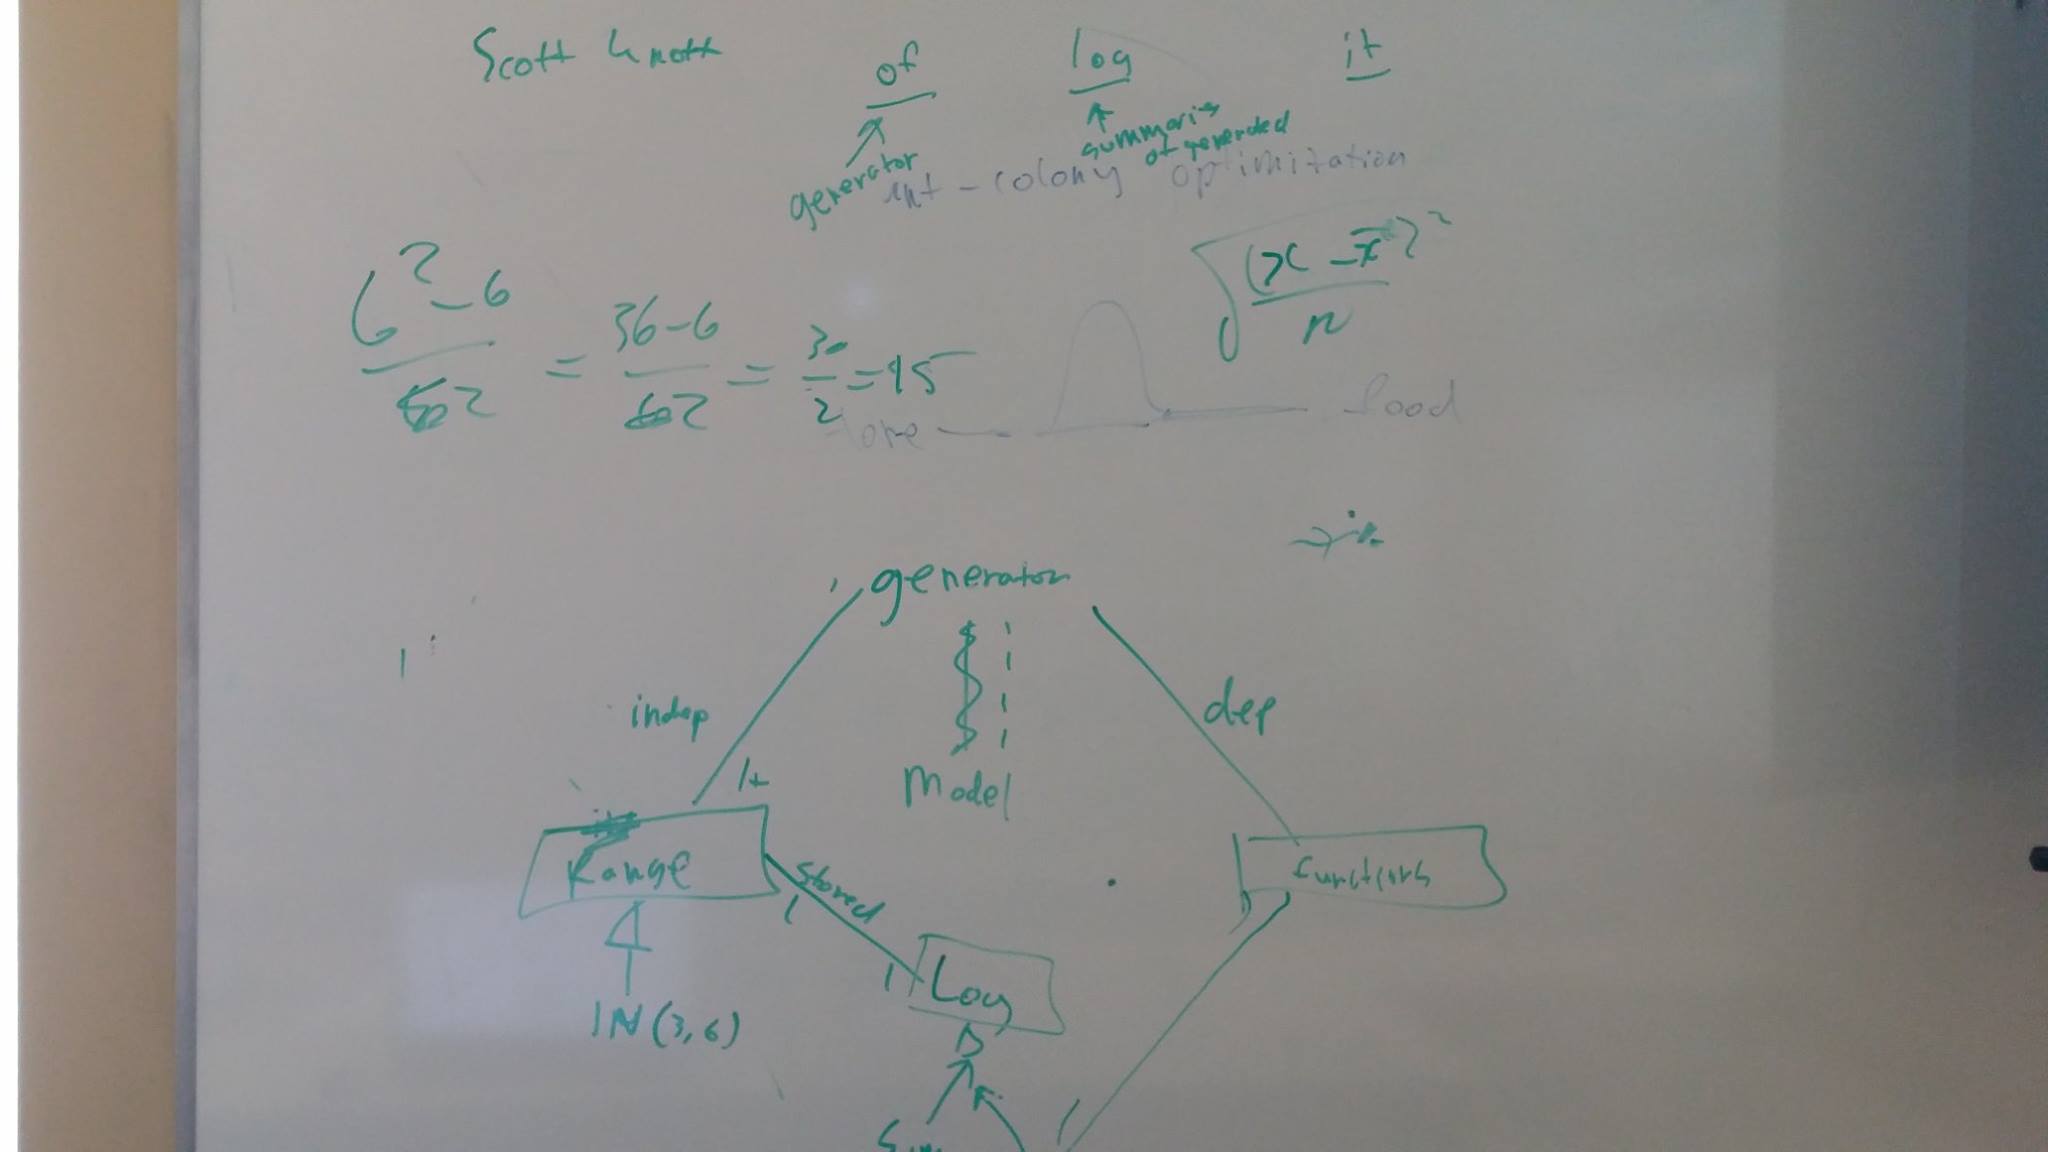 Scott Knott of log it
generator
summaris
of generated
ant-colony optimitation
6² - 6 / 2 = 36-6 / 2 = 30 / 2 = 15
√ (x - x̄)² / n
food
generator
indep
dep
1+
Model
Range
stored
functions
1
1
Log
IN(3,6)